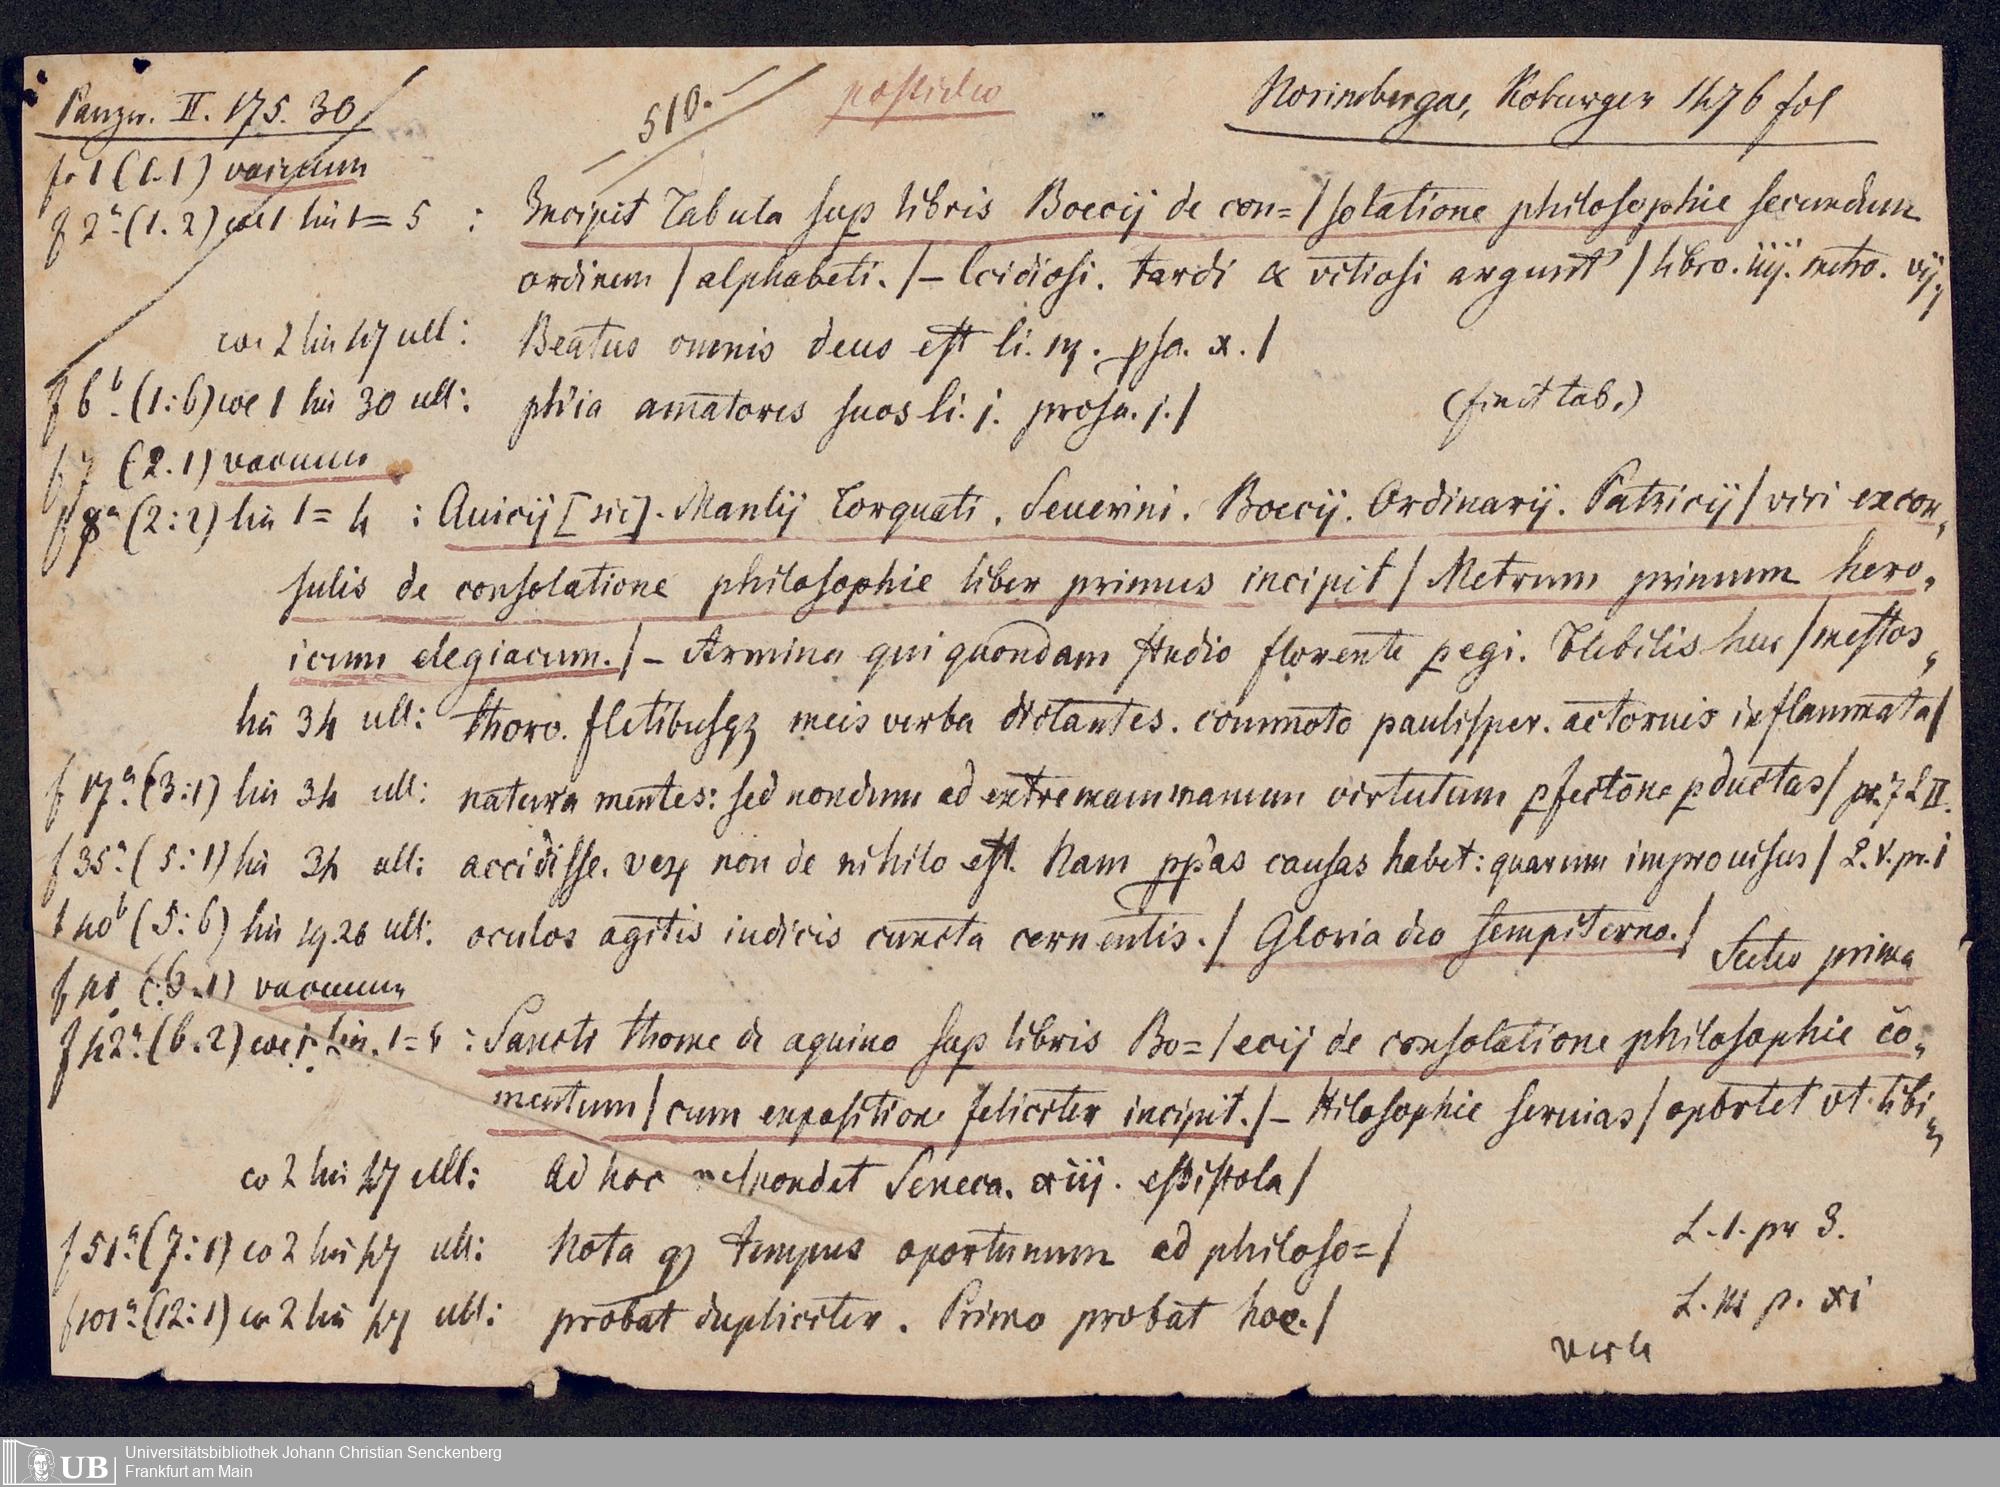 Panzer. II. 175. 30
510.
possideo
Norimbergae, Koburger 1476 fol
f. 1 (1.1) vacuum
f 2a (1.2) col 1 lin 1=5 : Incipit Tabula sup libris Boecij de con=/solatione philosophie secundum
ordinem / alphabeti. /– Ccidiosi. tardi & vitiosi argunt' / libro. iiij. metro. vij.
co 2 lin 47 ult: Beatus omnis deus est li. iij. psa. x. /
f 6b (1:6) col 1 lin 30 ult: phia amatores suos li. j. prosa. j. / (finit tab.)
f 7 (2.1) vacuum
f 8a (2:2) lin 1=4 : Auicij [sic]. Manlij Torquati. Seuerini. Boecij. Ordinarij. Patricij / viri excon,
sulis de consolatione philosophie liber primus incipit / Metrum primum hero,
icum elegiacum. /– Armina qui quondam studio florente pegi. Flebilis heu / mestos,
lin 34 ult: thoro. fletibusqz meis verba dictantes. commoto paulisper. actoruis inflammata /
f 17a (3:1) lin 34 ult: natura mentes: sed nondum ad extremam manum virtutum pfectōne pductas / pr. 7 L II.
f 35a (5:1) lin 34 ult: accidisse. veꝝ non de nihilo est. Nam ppas causas habet: quarum improuisus / L. V. pr. i
f 40b (5:6) lin 26 ult: oculos agitis iudicis cuncta cernentis. / Gloria deo sempiterno. /
f 41 (6.1) vacuum Sectio prima
f 42a (6.2) col 1 lin. 1=4 : Sancti thome de aquino sup libris Bo=/ecij de consolatione philosophie cō,
mentum / cum expositione feliciter incipit. /– Hilosophie seruias / oportet vt tibi
co 2 lin 47 ult: Ad hoc respondet Seneca. xiij. epistola /
f 51a (7:1) co 2 lin 47 ult: Nota qꝫ tempus oportunum ad philoso=/ L. 1. pr 3.
f 101a (12:1) co 2 lin 47 ult: probat dupliciter. Primo probat hoc. / L. III p. xi
verte
UB Universitätsbibliothek Johann Christian Senckenberg
Frankfurt am Main